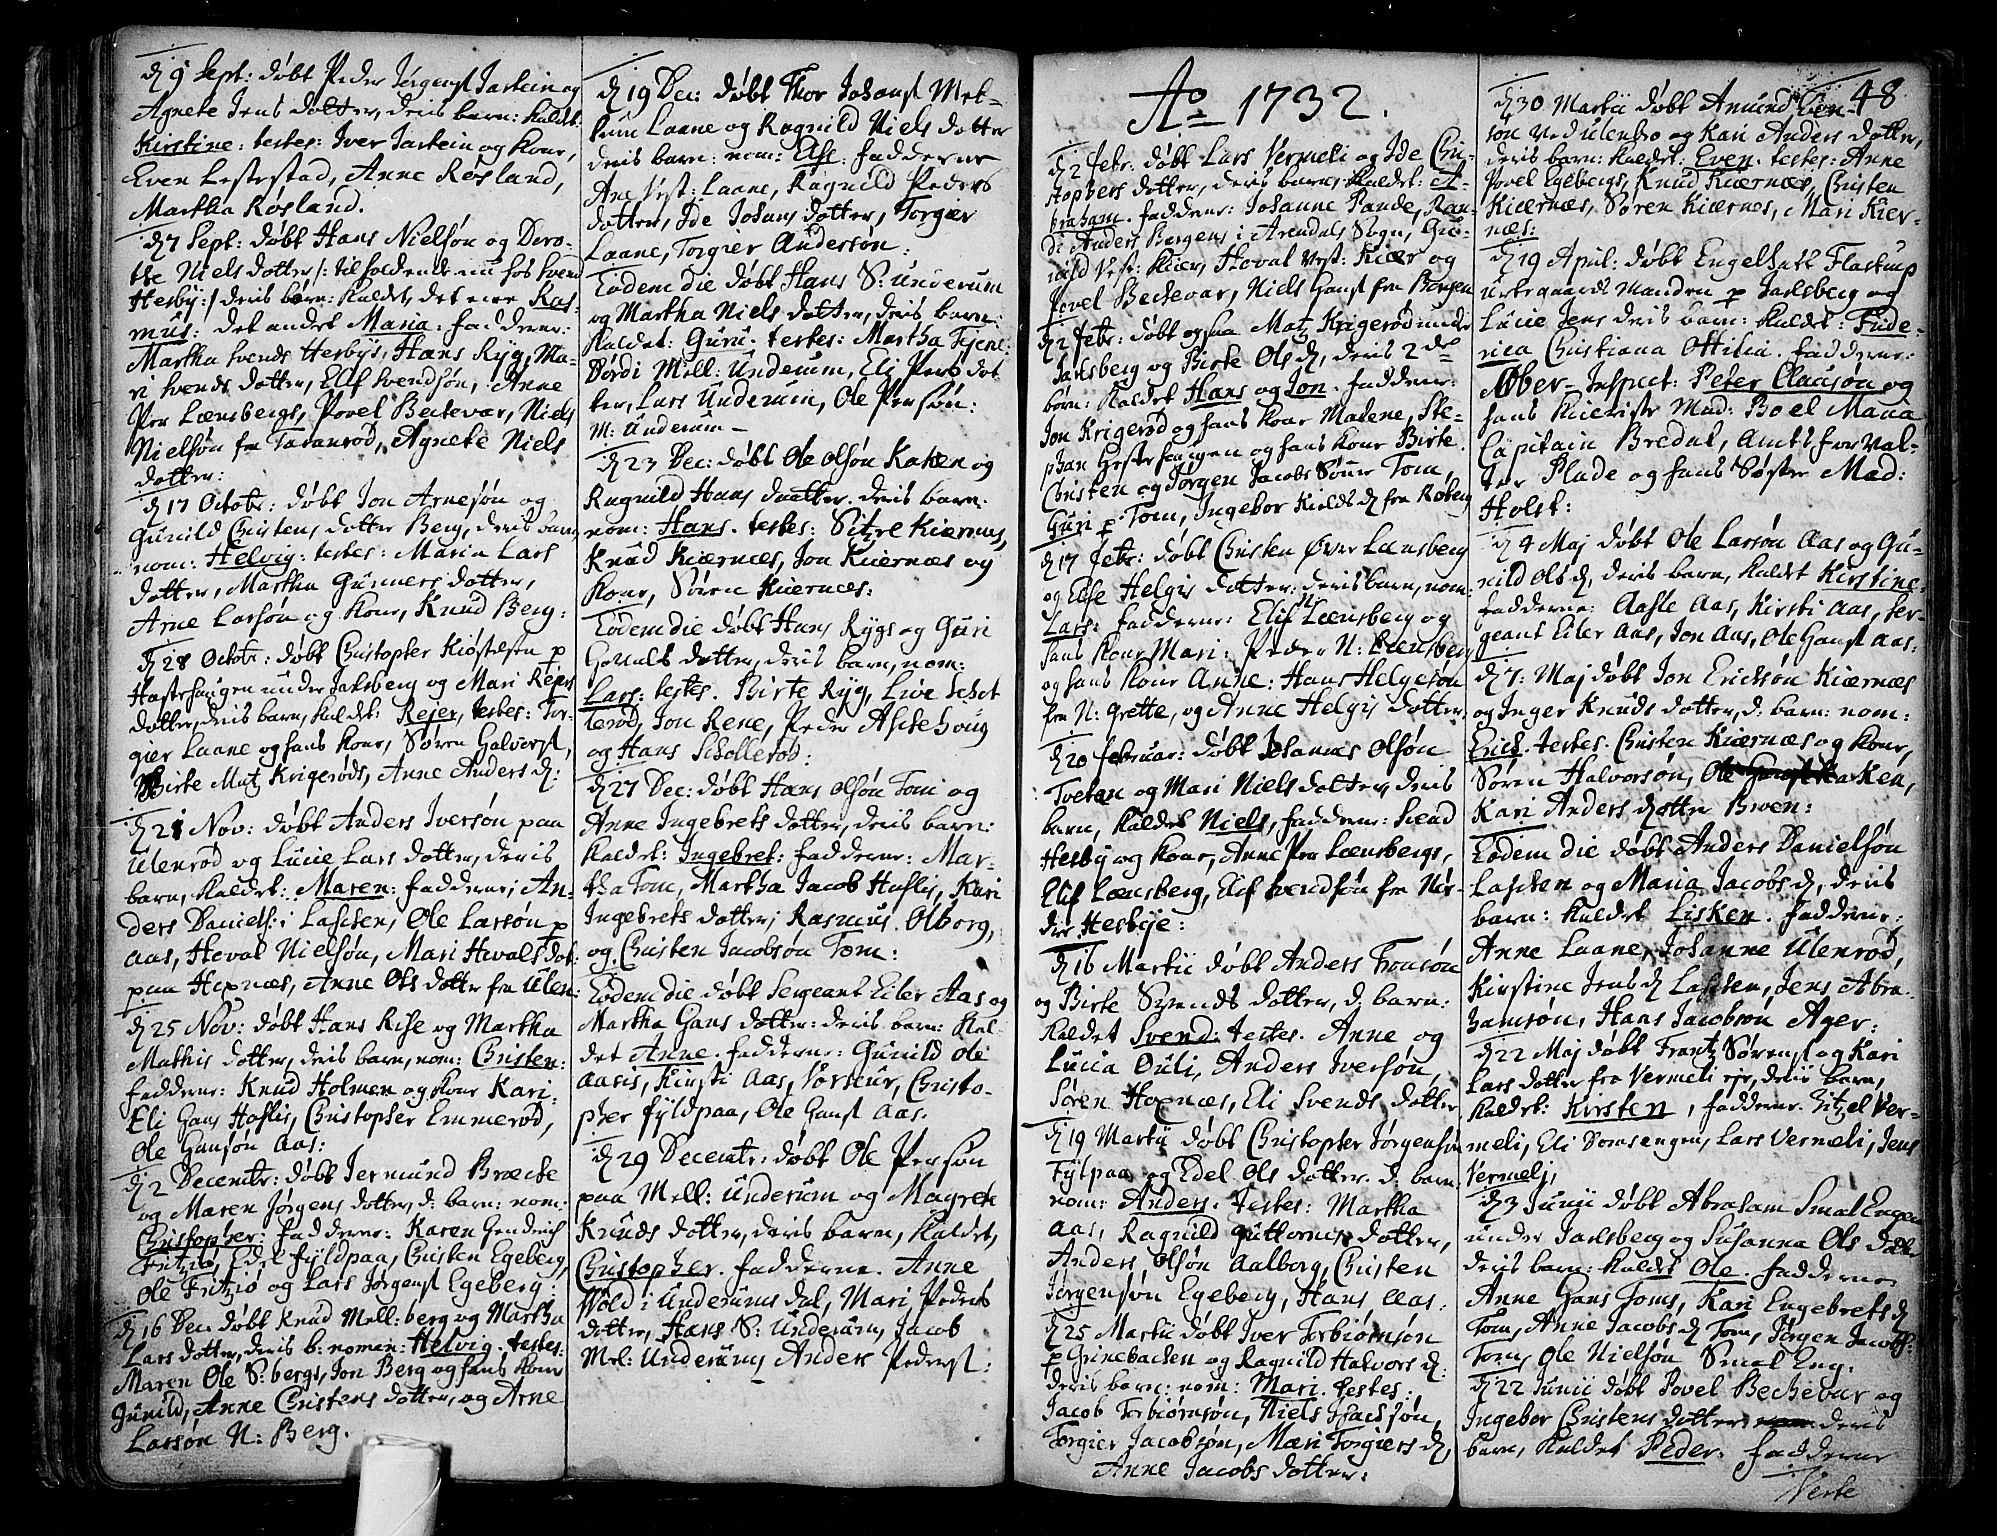 d 9 Sept: døbt Peder Jørgensl Jarlein og
Agnete Jens dotter, deris barn: kaldet:
Kirstine: testes: Iver Jarlein og kone,
Even Lestestad, Anne Røsland,
Martha Røsland.
d 7 Sept: døbt Hans Nielsøn og Doro-
the Niels dotter /: tilholdende nu hos Svend
Hesby :/ deris børn: kaldet, det eene Ras-
mus: det andet Maria: fadderne:
Martha Svends Hesbys, Hans Ryg, Ma-
ri Svends dotter, Elif Svendsøn, Anne
Per Lænsbergs, Povel Bechevar, Niels
Nielsøn fra Tadanrød, Agnete Niels
dotter:
d 17 Octobr: døbt Jon Arnesøn og
Gunild Christens dotter Berg, deris barn
nom: Helvig: testes: Maria Lars
dotter, Martha Gunners dotter,
Arne Larsøn og kone, Knud Berg:
d 28 Octobr: døbt Christopher Kiøstelsen p
Hastehaugen under Jarlsberg og Mari Rejers
dotter, deris barn, kaldet Rejer, testes: Tor-
gier Laane og hans kone, Søren Halvorsl,
Birte Matz Krigerøds, Anne Anders d:
d 21 Nov: døbt Anders Iversøn paa
Ulenrød og Lucie Lars dotter, deris
barn, kaldet: Maren: fadderne: An-
ders Daniels: i Laschen, Ole Larsøn p
Aas, Hoval Nielsøn, Mari Hovals dot:
paa Hoxnæs, Anne Ols dotter fra Ulen:
d 25 Nov: døbt Hans Rise og Martha
Mathis dotter, deris barn, nom: Christen:
fadderne: Knud Holmen og kone Kari,
Eli Hans Hoflis, Christopher Emmerød,
Ole Hansøn Aas:
d 2 Decembr: døbt Jermund Bræche
og Maren Jørgens dotter, d: barn: nom:
Christopher: fadderne: Karen Hendrich
Fritzió, Edel Fyldpaa, Christen Egeberg,
Ole Fritzió og Lars Jørgensl Egeberg:
d 16 Dec: døbt Knud Mell: berg og Martha
Lars dotter, deris b: nomen: Helvig. testes:
Maren Ole S: bergs, Jon Berg og hans kone
Gunild, Anne Christens dotter, og Arne
Larsøn N: Berg.
d 19 Dec: døbt Thor Johansl Mel-
lum Laane og Ragnild Niels dotter
deris barn: nom: Ase: fadderne
Ane Vest: Laane, Ragnild Peders
dotter, Ide Johans dotter, Torgier
Laane, Torgier Andersøn:
Eodem die døbt Hans S: Underum
og Martha Niels dotter, deris barn:
kaldet: Guru: testes: Martha Tjene:
Dordi Mell: Underum, Eli Pers dot
ter, Lars Underum, Ole Persøn:
M: Underum –
d 23 Dec: døbt Ole Olsøn Kaken og
Ragnild Hans daatter. deris barn.
nom: Hans. testes: Sitzre Kiærnes,
Knud Kiærnæs, Jon Kiærnæs og
kone, Søren Kiærnes:
Eodem die døbt Hans Rygs og Guri
Hovals dotter, deris barn, nom:
Lars: testes. Birte Ryg, Live Schol
lerød, Jon Rene, Peder Aschehoug
og Hans Schollerød:
d 27 Dec: døbt Hans Olsøn Tom og
Anne Ingebrets dotter, deris barn:
kaldet: Ingebret: fadderne: Mar-
tha Tom, Martha Jacob Huflis, Kari
Ingebrets dotter, Rasmus Olborg,
og Christen Jacobsøn Tom:
Eodem die døbt Sergeant Eiler Aas og
Martha Hans dotter: deris barn: kal-
det Anne. fadderne: Gunild Ole
Aasis, Kirsti Aas, Vorseur, Christo-
pher Fyldpaa, Ole Hansl Aas.
d 29 Decembr: døbt Ole Persøn
paa Mell: Underum og Magrete
Knuds dotter, deris barn, kaldet,
Christopher. fadderne. Anne
Wold i Underums dal, Mari Peders
dotter, Hans S: Underum, Jacob
Mel: Underum, Anders Pedersl:
Ao 1732.
48
d 2 Febr: døbt Lars Vermeli og Ide Chri-
stophers dotter, deris barn, kaldet: A-
braham. fadderne: Johanne Pande, Ran-
di Anders Bergens i Arendals Sogn, Gu-
nild Vest: Kiær, Hoval Vest: Kiær og
Povel Bechevar, Niels Hansl fra Borgen
d 2 Febr: døbt ogsaa Matz Krigerød under
Jarlsberg og Birte Ols d, deris 2de
børn: kaldet Hans og Jon. fadderne:
Jon Krigerød og hans kone Malene, Ste-
phan Hestehaugen og hans kone Birte.
Christen og Jørgen Jacobs Sønner Tom,
Guri p. Tom, Ingebor Kields d fra Røberg
d 17 Febr: døbt Christen Øver Lænsberg
og Else Helgis dotter: deris barn, nom:
Lars: fadderne: Elif Lænsberg og
hans kone Mari: Peder N: Lænsberg
og hans kone Anne: Hans Helgesøn
fra N: Grette, og Anne Helgis dotter.
d 20 Februar: døbt Johannes Olsøn
Tvetan og Mari Niels dotter, deris
barn, kaldet Niels, fadderne: Svend
Hesby og kone, Anne Per Lænsbergs,
Elif Lænsberg, Elif Svendsøn fra Ner-
dre Hesbye:
d 16 Martii døbt Anders Tronsøn
og Birte Svends dotter, d. barn:
kaldet Svend: testes. Anne og
Lucia Ouli, Anders Iversøn,
Søren Hoxnæs, Eli Svends dotter
d 19 Martii døbt Christopher Jørgensøn
Fylpaa og Edel Ols dotter. d. barn
nom: Anders. testes: Martha
Aas, Ragnild Guttormis dotter,
Anders Olsøn Aalborg, Christen
Jørgensøn Egeberg, Hans Aas.
d 25 Martii døbt Iver Torbiørnsøn
p Grinebacken og Ragnild Halvors d:
deris barn: nom: Mari. testes:
Jacob Torbiørnsøn, Niels Isacsøn,
Torgier Jacobsøn, Mari Torgiers d,
Anne Jacobs dotter:
d 30 Martii døbt Amund Ton-
søn ved Ulenbro og Kari Anders dotter,
deris barn: kaldet: Even. testes: Anne
Povel Egebergs, Knud Kiærnæs, Christen
Kiærnæs, Søren Kiærnes, Mari Kier-
næs:
d 19 April: døbt Engelhatt Flastrup
urtegaards Manden p Jarlsberg og
Lucie Jens deris barn: kaldet: Fride-
rica Christiana Ottilia. fadderne:
Ober-Inspect: Peter Clausøn og
hans Kiæriste Mad: Boel Maria
Capitain Bredal, Amts forval-
ter Plade og hans Søster Mad:
Holst:
d 4 Maj døbt Ole Larsøn Aas og Gu-
nild Ols d, deris barn, kaldet Kirstine.
fadderne: Aasle Aas, Kirsti Aas, Ser-
geant Eiler Aas, Jon Aas, Ole Hansl Aas.
d 7: Maj døbt Jon Ericksøn Kiærnæs
og Inger Knuds dotter, d: barn: nom:
Erich. testes. Christen Kiærnæs og kone,
Søren Halvorsøn, Ole Kaken,
Kari Anders dotter Broen:
Eodem die døbt Anders Danielsøn
Laschen og Maria Jacobs d, deris
barn: kaldet Lisken. fadderne:
Anne Laane, Johanne Ulenrød,
Kirstine Jens d Laschen, Jens Abra-
hamsøn, Hans Jacobsøn Ager:
d 22 Maj døbt Frantz Sørensl og Kari
Lars dotter fra Vermeli eje, deris barn,
kaldet: Kirsten, fadderne. Zitzel Ver-
meli, Eli Domsengen, Lars Vermeli, Jens
Vermeli,
d 3 Junii døbt Abraham Smal Engen
under Jarlsberg og Susanna Ols dotter
deris barn: kaldet Ole. fadderne
Anne Hans Toms, Kari Engebrets d
Tom, Anne Jacobs d Tom, Jørgen Jacobs:
Tom, Ole Nielsøn Smal Eng:
d 22 Junii døbt Povel Bechevar og
Ingebor Christens dotter, deris
barn, kaldet Peder: fadderne
Verte